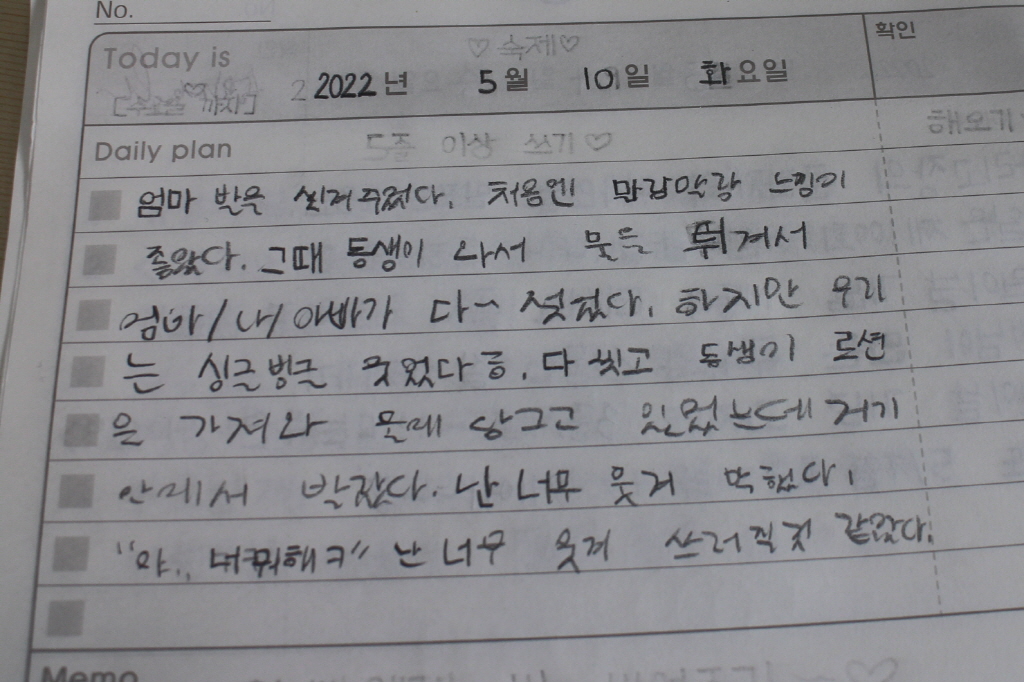 No.
Today is ♡숙제♡ 확인
2022년 5월 10일 화요일
Daily plan 5줄 이상 쓰기♡
엄마 발을 씻겨주었다. 처음엔 말랑말랑 느낌이
좋았다. 그때 동생이 와서 물을 튀겨서
엄마/나/아빠가 다~ 젖었다. 하지만 우리
는 싱글벙글 웃었다ㅎ. 다 씻고 동생이 로션
을 가져와 몰래 당그고 있었는데 거기
안에서 발잤다. 난 너무 웃겨 막했다.
"야.. 너뭐해ㅋ" 난 너무 웃겨 쓰러질것 같았다.
Memo